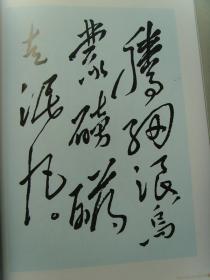 騰細浪烏
蒙磅礴
走泥丸。